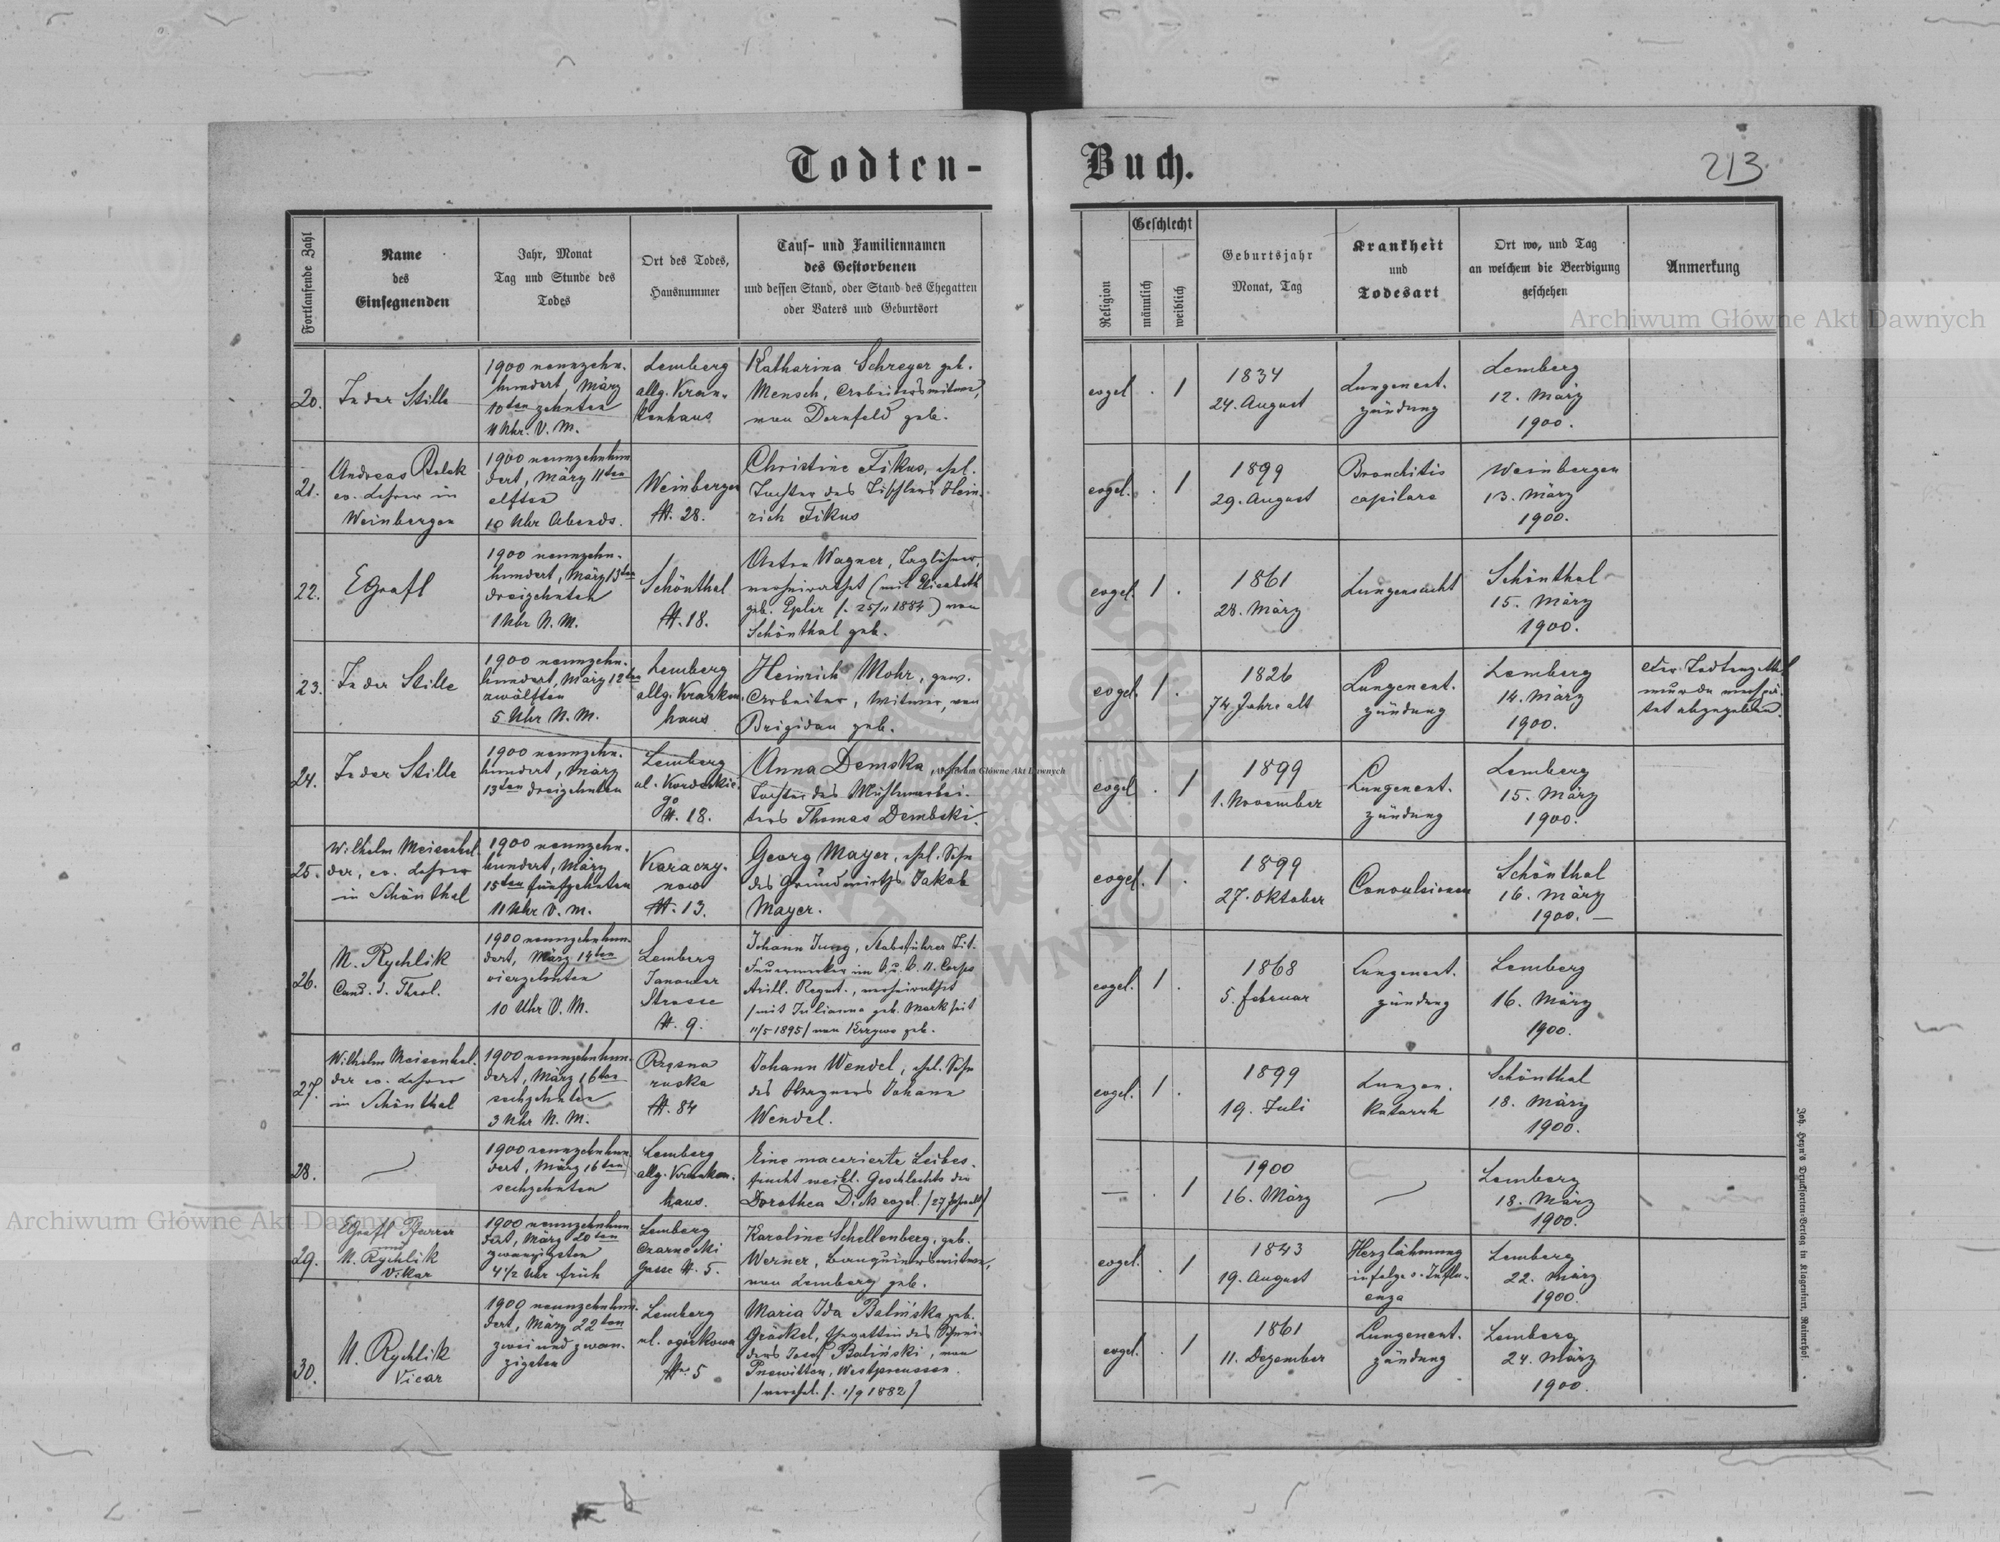 Todten-Buch.
213.
Fortlaufende Zahl
Name
des
Einsegnenden
Jahr, Monat
Tag und Stunde des
Todes
Ort des Todes,
Hausnummer
Tauf- und Familiennamen
des Gestorbenen
und dessen Stand, oder Stand des Ehegatten
oder Vaters und Geburtsort
Religion
Geschlecht
männlich
weiblich
Geburtsjahr
Monat, Tag
Krankheit
und
Todesart
Ort wo, und Tag
an welchem die Beerdigung
geschehen
Anmerkung
20.
In der Stille
1900 neunzehn-
hundert, März
10ten zehnten
11 Uhr V. M.
Lemberg
allg. Kran-
kenhaus
Katharina Schreyer geb.
Mensch, Arbeiterswitwe,
von Dornfeld geb.
evgel.
1
1834
24. August
Lungenent-
zündung
Lemberg
12. März
1900.
21.
Andreas
ev. Lehrer in
Weinbergen
1900 neunzehnhun-
dert, März 11ten
elften
10 Uhr Abends.
Weinbergen
N. 28.
Christine Fikus, ehl.
Tochter des Tischlers Hein-
rich Fikus
evgel.
1
1899
29. August
Bronchitis
capilare
Weinbergen
13. März
1900.
22.
EGrafl
1900 neunzehn-
hundert, März 13ten
dreizehnten
1 Uhr N. M.
Schönthal
N. 18.
Wagner, Taglöhner,
verheirathet (mit Elisabeth
geb. Epler s. 25/11 1884) von
Schönthal geb.
evgel.
1
1861
28. März
Lungensucht
Schönthal
15. März
1900.
23.
In der Stille
1900 neunzehn-
hundert, März 12ten
zwölften
5 Uhr N. M.
Lemberg
allg. Kranken-
haus
Heinrich Mohr, gew.
Arbeiter, Witwer, von
Brigidau geb.
evgel.
1
1826
74. Jahre alt
Lungenent-
zündung
Lemberg
14. März
1900.
Der Todtenzettel
wurde verspä-
tet abgegeben.
24.
In der Stille
1900 neunzehn-
hundert, März
13ten dreizehnten
Lemberg
ul.
go
N. 18.
Anna Demska, ehl.
Tochter des Mühlenarbei-
ters Thomas Dembski.
evgel
1
1899
1. November
Lungenent-
zündung
Lemberg
15. März
1900.
25.
Wilhelm Meisenhel-
der, ev. Lehrer
in Schönthal
1900 neunzehn-
hundert, März
15ten fünfzehnten
11 Uhr V. M.
Karaczy-
now
N. 13.
Georg Mayer, ehl. Sohn
des Grundwirths Jakob
Mayer.
evgel.
1
1899
27. Oktober
Convulsionen
Schönthal
16. März
1900. —
26.
N. Rychlik
Cand. d. Theol.
1900 neunzehnhun-
dert, März 14ten
vierzehnten
10 Uhr V. M.
Lemberg
Janower
Strasse
N. 9.
Johann Jung, Stabsführer Tit.
Feuerwerker im k. u. k. 11. Corps
Artll. Regmt., verheirathet
/mit Julianna geb. Mark seit
11/5 1895/ von geb.
evgel.
1
1868
5. Februar
Lungenent-
zündung
Lemberg
16. März
1900.
27.
Wilhelm Meisenhel-
der ev. Lehrer
in Schönthal
1900 neunzehnhun-
dert, März 16ten
sechzehnten
3 Uhr N. M.
ruska
N. 84
Johann Wendel, ehl. Sohn
des Wagners Johann
Wendel.
evgel.
1
1899
19. Juli
Lungen-
katarrh
Schönthal
18. März
1900.
28.
1900 neunzehnhun-
dert, März 16ten
sechzehnten
Lemberg
allg. Kranken-
haus.
Eine macerierte Leibes-
frucht weibl. Geschlechts der
Dorothea Dick evgel. /27 Jahre alt/
—
1
1900
16. März
Lemberg
18. März
1900.
29.
EGrafl Pfarrer
und
N. Rychlik
Vikar
1900 neunzehnhun-
dert, März 20ten
zwanzigsten
4 1/2 Uhr früh
Lemberg
Czarnecki
Gasse N. 5.
Karoline Schellenberg, geb.
Werner, Banquierswitwe,
von Lemberg geb.
evgel.
1
1843
19. August
Herzlähmung
infolge v. Influ-
enza
Lemberg
22. März
1900.
30.
N. Rychlik
Vicar
1900 neunzehnhun-
dert, März 22ten
zwei und zwan-
zigsten
Lemberg
ul. ogórkowa
N. 5
Maria Ida Balińska geb.
Gröckel, Ehegattin des Schnei-
ders Josef Baliński, von
Pnewitten, Westpreussen.
/verehel. s. 1/9 1882/
evgel.
1
1861
11. Dezember
Lungenent-
zündung
Lemberg
24. März
1900.
Joh. Heyn's Drucksorten-Verlag in Klagenfurt, Rainerhof.
Archiwum Główne Akt Dawnych
Archiwum Główne Akt Dawnych
Archiwum Główne Akt Dawnych